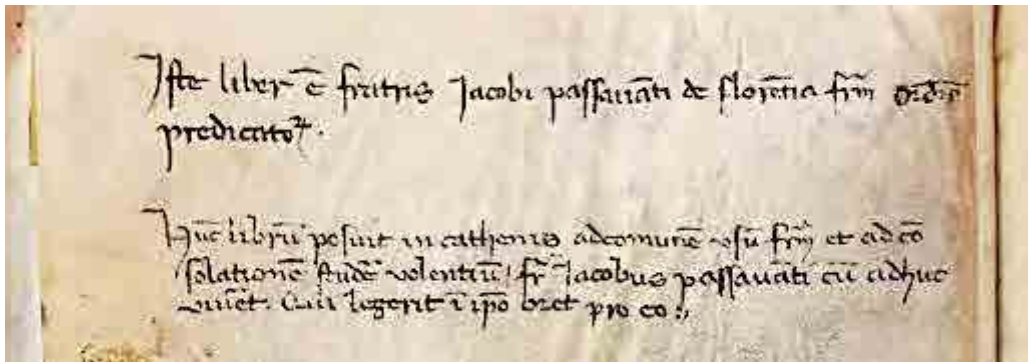 Iste liber ē fratris Jacobi passauāti de florētia frū̄m ordīs
predicatoꝝ.
Hūc librū posuit in cathenis ad comunē usū frm̄ et ad cō
solationē studē volentiū, fr̄ Jacobus passauāti cū adhuc
viūet. Qui legerit ī ip̄o oret pro eo:,